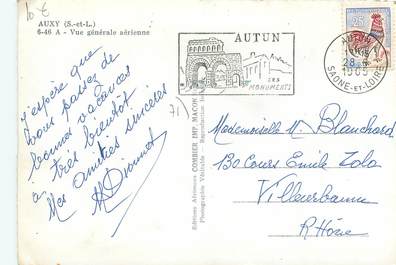 10 €
AUXY (S.-et-L.)
6-46 A - Vue générale aérienne
AUTUN
SES
MONUMENTS
AUTUN
28
1965
SAONE-ET-LOIRE
25
71)
J'espère que
vous passez de
bonnes vacances
à très bientôt
Mes amitiés sincères
Editions Aériennes COMBIER IMP. MACON
Photographie Véritable - Reproduction
Mademoiselle M Blanchard
130 Cours Emile Zola
Villeurbanne
Rhône